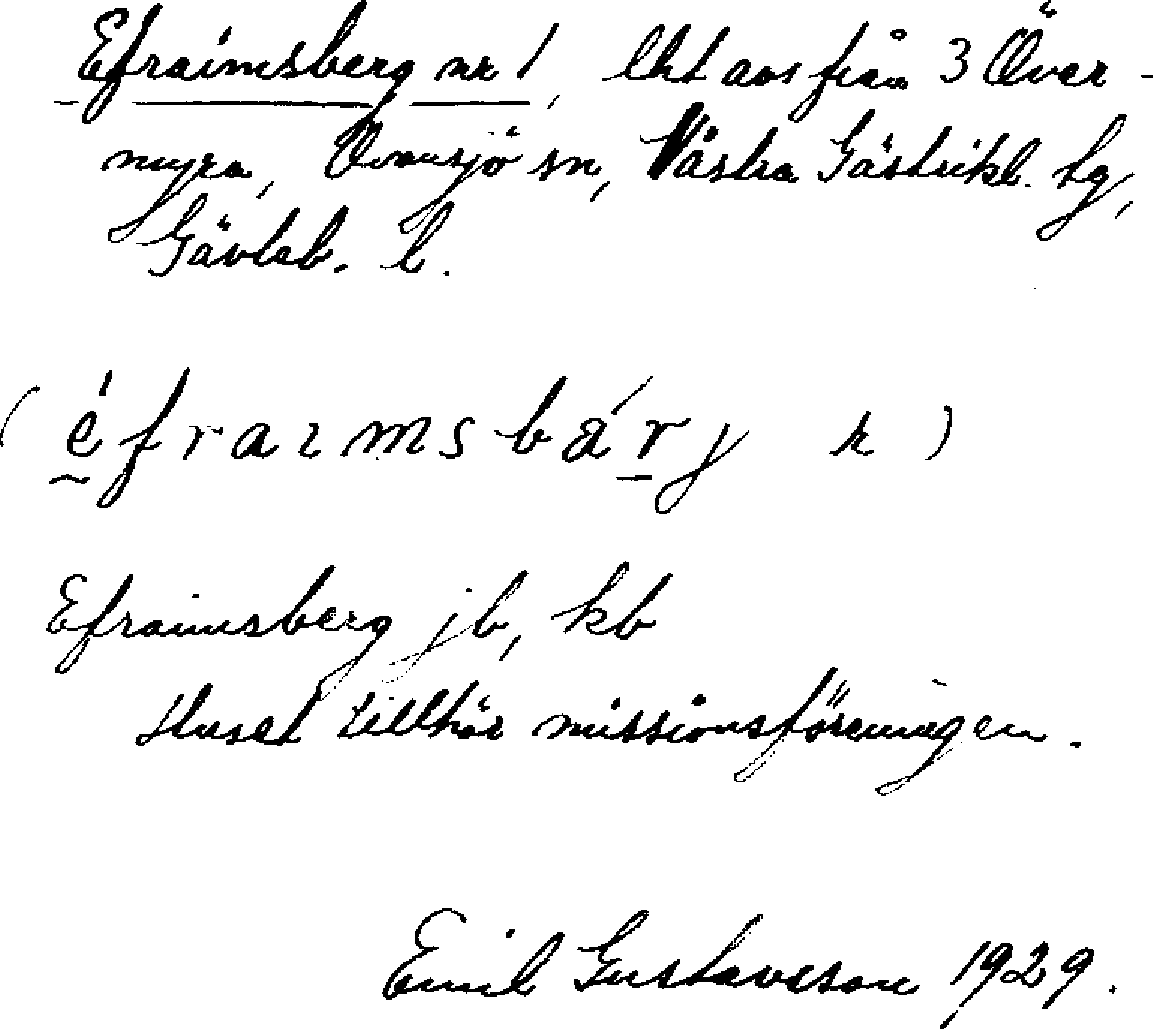 Efraimsberg nr 1, lht avs från 3 Över-
myra, Ovansjö sn, Västra Gästrikl. tg,
Gävleb. l.
(éfraımsbä́rj k)
Efraimsberg jb, kb
Huset tillhör missionsföreningen.
Emil Gustavsson 1929.